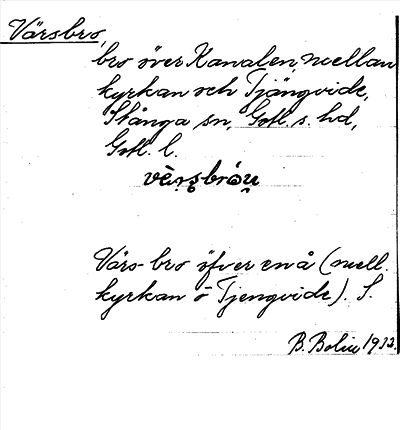 Värsbro,
bro över Kanalen, mellan
kyrkan och Tjängvide,
Stånga sn, Gotl. s. hd,
Gotl. l.
vè̱ṛs̥bróu̯
Värs-bro öfver en å (mell.
kyrkan o Tjengvide). S.
B. Bolin 1933.